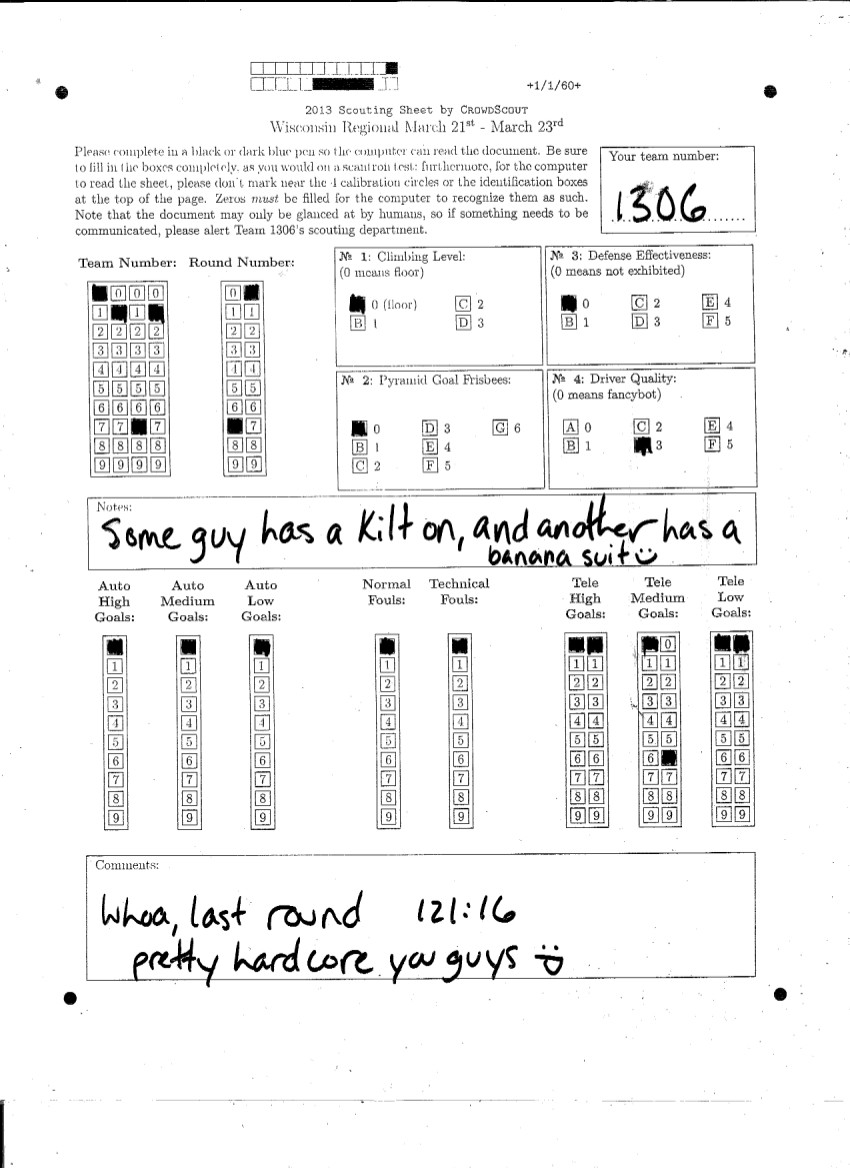 +1/1/60+
2013 Scouting Sheet by CROWDSCOUT
Wisconsin Regional March 21st - March 23rd
Please complete in a black or dark blue pen so the computer can read the document. Be sure
to fill in the boxes completely, as you would on a scantron test; furthermore, for the computer
to read the sheet, please don't mark near the 4 calibration circles or the identification boxes
at the top of the page. Zeros must be filled for the computer to recognize them as such.
Note that the document may only be glanced at by humans, so if something needs to be
communicated, please alert Team 1306's scouting department.
Your team number:
1306
Team Number: Round Number:
0 0 0 0
1 1 1 1
2 2 2 2 2 2
3 3 3 3 3 3
4 4 4 4 4 4
5 5 5 5 5 5
6 6 6 6 6 6
7 7 7 7
8 8 8 8 8 8
9 9 9 9 9 9
№ 1: Climbing Level:
(0 means floor)
0 (floor) C 2
B 1 D 3
№ 3: Defense Effectiveness:
(0 means not exhibited)
0 C 2 E 4
B 1 D 3 F 5
№ 2: Pyramid Goal Frisbees:
0 D 3 G 6
B 1 E 4
C 2 F 5
№ 4: Driver Quality:
(0 means fancybot)
A 0 C 2 E 4
B 1 3 F 5
Notes:
Some guy has a kilt on, and another has a
banana suit
Auto High Goals:
Auto Medium Goals:
Auto Low Goals:
Normal Fouls:
Technical Fouls:
Tele High Goals:
Tele Medium Goals:
Tele Low Goals:
0
1 1 1 1 1 1 1 1 1 1 1
2 2 2 2 2 2 2 2 2 2 2
3 3 3 3 3 3 3 3 3 3 3
4 4 4 4 4 4 4 4 4 4 4
5 5 5 5 5 5 5 5 5 5 5
6 6 6 6 6 6 6 6 6 6
7 7 7 7 7 7 7 7 7 7 7
8 8 8 8 8 8 8 8 8 8 8
9 9 9 9 9 9 9 9 9 9 9
Comments:
Whoa, last round 121:16
pretty hardcore you guys :D